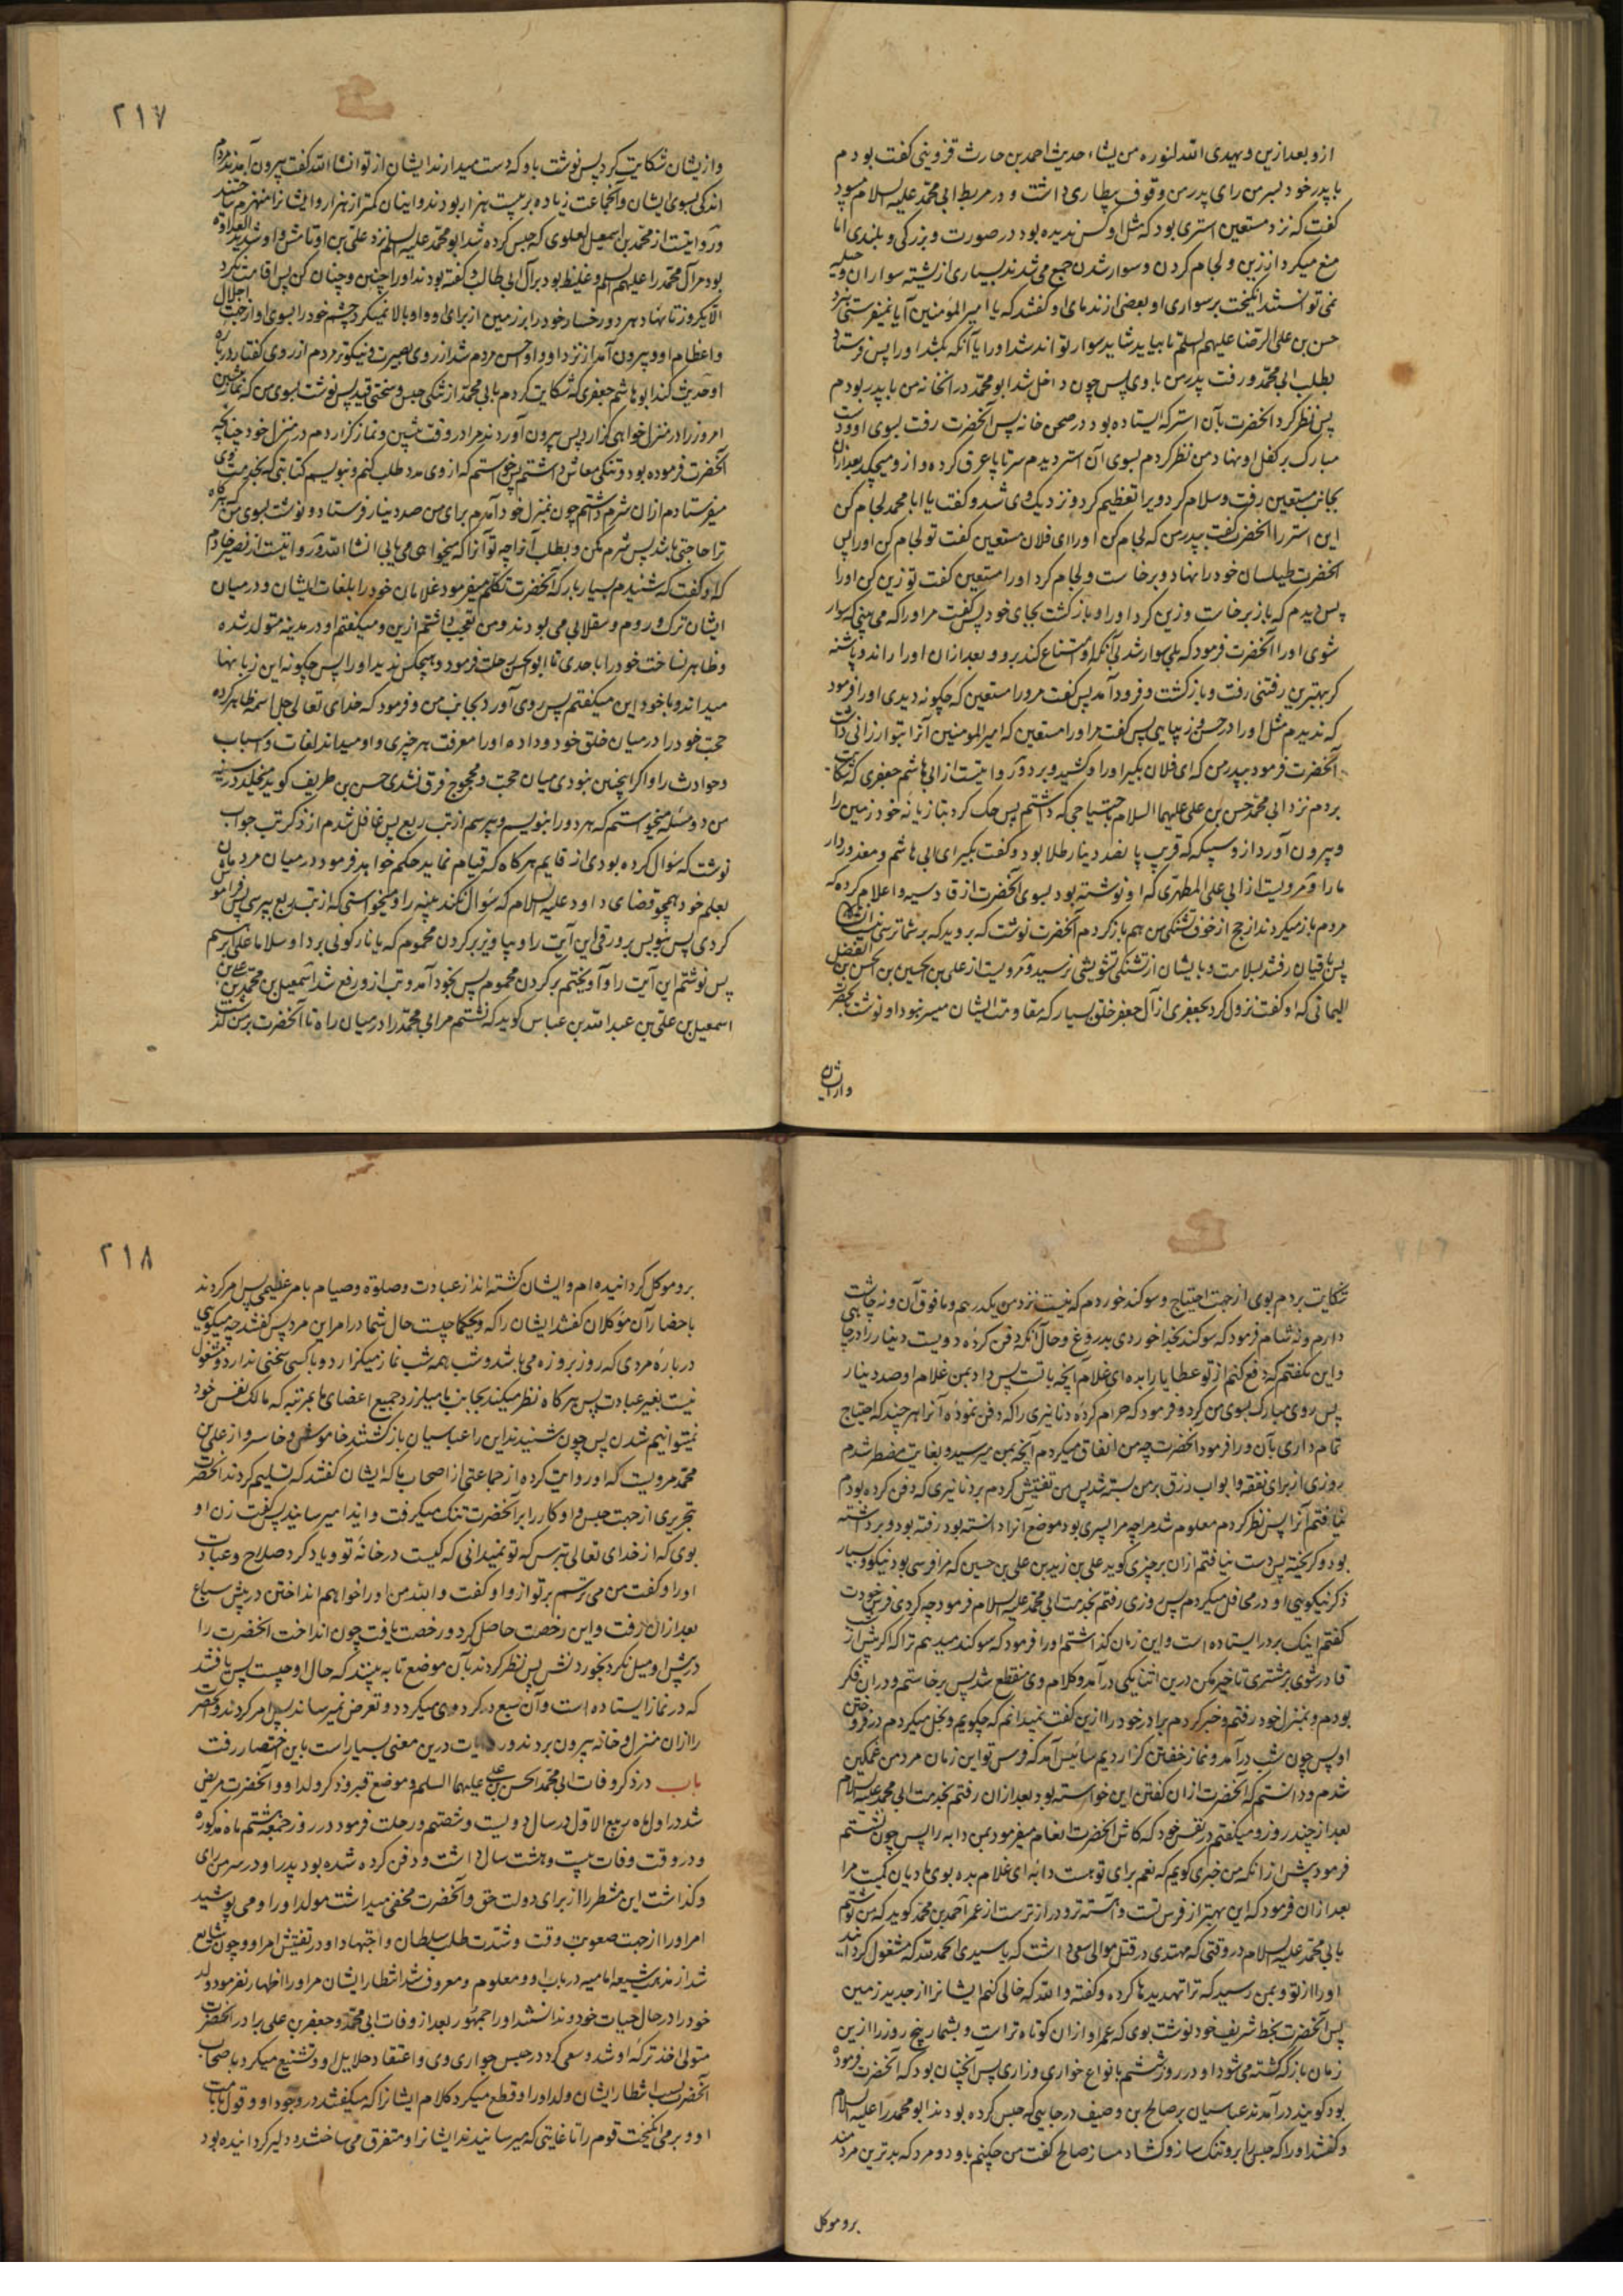 ازو بعد ازین و یهدی الله لنوره من یشاء حدیث احمد بن حارث قزوینی گفت بودم
با پدر خود بسر من رای پدر من وقوف بیطاری داشت و در مربط ابی محمد علیه السلام میبود
گفت که نزد مستعین استری بود که مثل او کس ندیده بود در صورت و بزرکی و بلندی اما
منع میکرد از زین و لجام کردن و سوار شدن جمع می شدند بسیاری از سواران و حیله
نمی توانستند انکیخت بر سواری او بعضی از ندمای او کفتند که یا امیر المؤمنین آیا نمیفرستی نزد
حسن بن علی الرضا علیهم السلم تا بیاید شاید سوار تواند شد او را یا آنکه بکشد او را پس فرستاد
بطلب ابی محمد و رفت پدر من با وی پس چون داخل شد ابو محمد در آنخانه من با پدر بودم
پس نظر کرد آنحضرت بآن استر که ایستاده بود در صحن خانه پس آنحضرت رفت بسوی او و دست
مبارک بر کفل او نهاد من نظر کردم بسوی آن استر دیدم سر تا پا عرق کرده و ازو میچکد بعد ازان
بجانب مستعین رفت و سلام کرد ویرا تعظیم کرد و نزدیک وی شد و کفت یا ابا محمد لجام کن
این استر را آنحضرت گفت بپدر من که لجام کن او را ای فلان مستعین کفت تو لجام کن او را پس
آنحضرت طیلسان خود را نهاد و برخاست و لجام کرد او را مستعین کفت تو زین کن او را
پس دیدم که باز برخاست و زین کرد او را و بازکشت بجای خود پس کفت مر او را که می بینی که سوار
شوی او را آنحضرت فرمود که بلی سوار شد بی آنکه امتناع کند برو و بعد ازان او را راند و پاشنه
کر بهترین رفتنی رفت و بازکشت و فرود آمد پس کفت مر ورا مستعین که چکونه دیدی او را فرمود
که ندیدم مثل او را در حسن و زیبایی پس کفت مر او را مستعین که امیر المومنین آنرا بتو ارزانی داشت
آنحضرت فرمود بپدر من که ای فلان بکیر او را و کشید و برد و روایتست از ابی هاشم جعفری که شکایت
بردم نزد ابی محمد حسن بن علی علیهما السلام احتیاجی که داشتم پس حک کرد بتازیانه خود زمین را
و بیرون آورد ازو سبیکه که قریب پانصد دینار طلا بود و کفت بکیر ای ابی هاشم و معذور دار
ما را و مرویست از ابی علی المطهری که او نوشته بود بسوی آنحضرت از قادسیه و اعلام کرده که
مردم باز میکردند از حج از خوف تشنکی من هم باز کردم آنحضرت نوشت که بروید که بر شما ترسی نیست ان شاء الله
پس باقیان رفتند بسلامت و بایشان از تشنکی تشویشی نرسید و مرویست از علی بن الحسین بن الحسن بن الفضل
الیمانی که او کفت نزول کرد بجعفری از آل جعفر خلق بسیار که مقاومت ایشان میسر نبود او نوشت بحضرت
وازایشان
۲۱۷
وازیشان شکایت کرد پس نوشت باو که دست میدارند ایشان از تو انشاالله کفت بیرون آمدند مردم
اندکی بسوی ایشان و آنجماعت زیاده بر بیست هزار بودند و اینان کمتر از هزار و ایشانرا منهزم ساختند
و روایتست از محمد بن اسمعیل العلوی که حبس کرده شد ابو محمد علیه السلم نزد علی بن اوتامش و او شدید العداوة
بود مر آل محمد را علیهم السلم و غلیظ بود بر آل ابی طالب و کفته بودند او را چنین و چنان کن پس اقامت نکرد
الا یکروز تا نهاد هر دو رخسار خود را بر زمین از برای او و او بالا نمیکرد چشم خود را بسوی او از جهت اجلال
و اعظام او و بیرون آمد از نزد او و او احسن مردم شد از روی بصیرت و نیکوتر مردم از روی کفتار درباره
او حدیث کند ابو هاشم جعفری که شکایت کردم بابی محمد از تنکی حبس و سختی قید پس نوشت بسوی من که نماز پیشین
امروز را در منزل خواهی کزارد پس بیرون آوردند مرا در وقت پیشین و نماز کزاردم در منزل خود چنانکه
آنحضرت فرموده بود و تنکی معاش داشتم میخواستم که از وی مدد طلب کنم و نبویسم کتابتی که بخدمت وی
میفرستادم ازان شرم داشتم چون بمنزل خود آمدم برای من صد دینار فرستاد و نوشت بسوی من هرکاه
ترا حاجتی باشد پس شرم مکن و بطلب آنرا چه تو آنرا که میخواهی می یابی انشاالله و روایتست از نصیر خادم
که او کفت که شنیدم بسیار بار که آنحضرت تکلم میفرمود غلامان خود را بلغات ایشان و در میان
ایشان ترک و روم و سقلابی می بودند و من تعجب داشتم ازین و میکفتم او در مدینه متولد شده
و ظاهر نساخت خود را با حدی تا ابو الحسن رحلت فرمود و هیچکس ندید او را پس چکونه این زبانها
میداند و با خود این میکفتم پس روی آورد بجانب من و فرمود که خدای تعالی جل اسمه ظاهر کرده
حجت خود را در میان خلق خود و داده او را معرفت هر چیزی و او میداند لغات و اسباب
و حوادث را و اکر اینچنین نبودی میان حجت و محجوج فرق نشدی حسن بن ظریف کوید میخلید در سینه
من دو مسئله میخواستم که هر دو را بنویسم و بپرسم از تب ربع پس غافل شدم از ذکر تب جواب
نوشت که سؤال کرده بودی از قایم هرکاه که قیام نماید حکم خواهد فرمود در میان مردمان
بعلم خود همچو قضای داود علیه السلام که سؤال نکند بینه را و میخواستی که از تب ربع بپرسی پس فراموش
کردی پس بنویس بر ورقی این آیت را و بیاویز بر کردن محموم که یا نار کونی بردا و سلاما علی ابرهیم
پس نوشتم این آیت را و آویختم بر کردن محموم پس بخود آمد و تب ازو رفع شد اسمعیل بن محمد بن علی بن
اسمعیل بن علی بن عبد الله بن عباس کوید که نشستم مر ابی محمد را در میان راه تا آنحضرت بر من کذر
شکایت بردم بوی از جهت احتیاج و سوکند خوردم که نیست نزد من یکدرهم و ما فوق آن و نه چاشت
دارم و نه شام فرمود که سوکند بخدا خوردی بدروغ و حال آنکه دفن کرده دویست دینار را در
و این نکفتم که دفع کنم از تو عطایا را بده ای غلام آنچه باتست پس داد بمن غلام او صد دینار
پس روی مبارک بسوی من کرد و فرمود که حرام کرده دنانیری را که دفن نموده آنرا هر چند که احتیاج
تمام داری بآن و را فرمود آنحضرت چه من انفاق میکردم آنچه بمن میرسید و بغایت مضطر شدم
روزی از برای نفقه و ابواب رزق بر من بسته شد پس من تفتیش کردم بر دنانیری که دفن کرده بودم
نیافتم آنرا پس نظر کردم معلوم شد مرا چه مرا پسری بود موضع آنرا دانسته بود رفته بود و برداشته
بود و کریخته پس دست نیافتم ازان بر چیزی کوید علی بن زید بن علی بن حسین که مرا فرسی بود نیکو و بسیار
ذکر نیکویی او در محافل میکردم پس روزی رفتم بخدمت ابی محمد علیه السلام فرمود چه کردی فرس خودت
کفتم اینک بر در ایستاده است و این زمان کذاشتم او را فرمود که سوکند میدهم ترا که اکر پیش از شب
قادر شوی بر مشتری تاخیر مکن درین اثنا یکی درآمد و کلام وی منقطع شد پس برخاستم و دران فکر
بودم و بمنزل خود رفتم و خبر کردم برادر خود را ازین کفت نمیدانم که چکویم و بخل میکردم در فروختن
او پس چون شب درآمد و نماز خفتن کزاردیم سائیس آمد که فرس تو این زمان مرد من غمکین
شدم و دانستم که آنحضرت ازان کفتن این خواسته بود بعد ازان رفتم بخدمت ابی محمد علیه السلام
بعد از چند روز و میکفتم در نفس خود که کاش آنحضرت انعام میفرمود بمن دابه را پس چون نشستم
فرمود پیش از آنکه من خبری کویم که نعم برای تو هست دابه ای غلام بده بوی مادیان کمیت مرا
بعد ازان فرمود که این بهتر از فرس تست و آهسته تر و درازترست از عمر احمد بن محمد کوید که من نوشتم
بابی محمد علیه السلام در وقتی که مهتدی در قتل موالی سعی داشت که یا سیدی الحمد لله که مشغول کردانید
او را از تو و بمن رسید که ترا تهدیدها کرده و کفته والله که خالی کنم ایشانرا از جدید زمین
پس آنحضرت بخط شریف خود نوشت بوی که عمر او ازان کوتاه ترست و بشمار پنج روز را ازین
زمان باز که کشته می شود او در روز ششم بانواع خواری و زاری پس آنچنان بود که آنحضرت فرموده
بود کویند درآمدند عباسیان بر صالح بن وصیف در جایی که حبس کرده بودند ابو محمد را علیه السلام
و کفتند او را که حبس را برو تنک ساز و کشاد مساز صالح کفت من چکنم باو دو مرد که بدترین مردمند
برو موکل
۲۱۸
برو موکل کردانیده ام و ایشان کشته اند از عبادت و صلوة و صیام بامر عظیمی پس امر کردند
باحضار آن مؤکلان کفتند ایشان را که ویحکما چیست حال شما در امر این مرد پس کفتند چه میکویی
درباره مردی که روز بروزه می باشد و شب همه شب نماز میکزارد و با کسی سخنی ندارد و مشغول
نیست بغیر عبادت پس هرکاه نظر میکند بجانب ما میلرزد جمیع اعضای ما بمرتبه که مالک نفس خود
نمیتوانیم شدن پس چون شنیدند این را عباسیان بازکشتند خاموش و خاسر و از علی بن
محمد مرویست که او روایت کرده از جماعتی از اصحاب ما که ایشان کفتند که تسلیم کردند آنحضرت
بنحریری از جهت حبس و او کار را بر آنحضرت تنک میکرفت و ایذا میرسانید پس کفت زن او
بوی که از خدای تعالی بترس که تو نمیدانی که کیست در خانه تو و یاد کرد صلاح و عبادت
او را و کفت من می ترسم بر تو ازو او کفت والله من او را خواهم انداختن در پیش سباع
بعد ازان رفت و این رخصت حاصل کرد و رخصت یافت چون انداخت آنحضرت را
در پیش او میل نکرد بخوردنش پس نظر کردند بآن موضع تا به بینند که حال او چیست پس یافتند
که در نماز ایستاده است و آن سبع در کرد وی میکردد و تعرض نمیرساند پس امر کردند و آنحضرت
را ازان منزل و خانه بیرون بردند و روایات درین معنی بسیار است باین اختصار رفت
باب در ذکر وفات ابی محمد الحسن بن علی علیهما السلم و موضع قبر و ذکر ولد او و آنحضرت مریض
شد در اول ماه ربیع الاول در سال دویست و شصتم و رحلت فرمود در روز جمعه هشتم ماه مذکوره
و در وقت وفات بیست و هشت سال داشت و دفن کرده شده بود پدر او در سر من رای
و کذاشت این منتظر را از برای دولت حق و آنحضرت مخفی میداشت مولد او را و می پوشید
امر او را از جهت صعوبت وقت و شدت طلب سلطان و اجتهاد او در تفتیش امر او و چون شایع
شد از مذهب شیعه امامیه در باب او و معلوم و معروف شد انتظار ایشان مر او را اظهار نفرمود ولد
خود را در حال حیات خود و ندانستند او را جمهور بعد از وفات ابی محمد و جعفر بن علی برادر آنحضرت
متولی اخذ ترکه او شد و سعی کرد در حبس جواری وی و اعتقاد حلایل او و تشنیع میکرد باصحاب
آنحضرت بسبب انتظار ایشان ولد او را و قطع میکرد کلام ایشانرا که میکفتند در وجود او و قول بامامت
او و برمی انکیخت قوم را تا غایتی که میرسانیدند ایشانرا و متفرق می ساختند و دلیر کردانیده بود